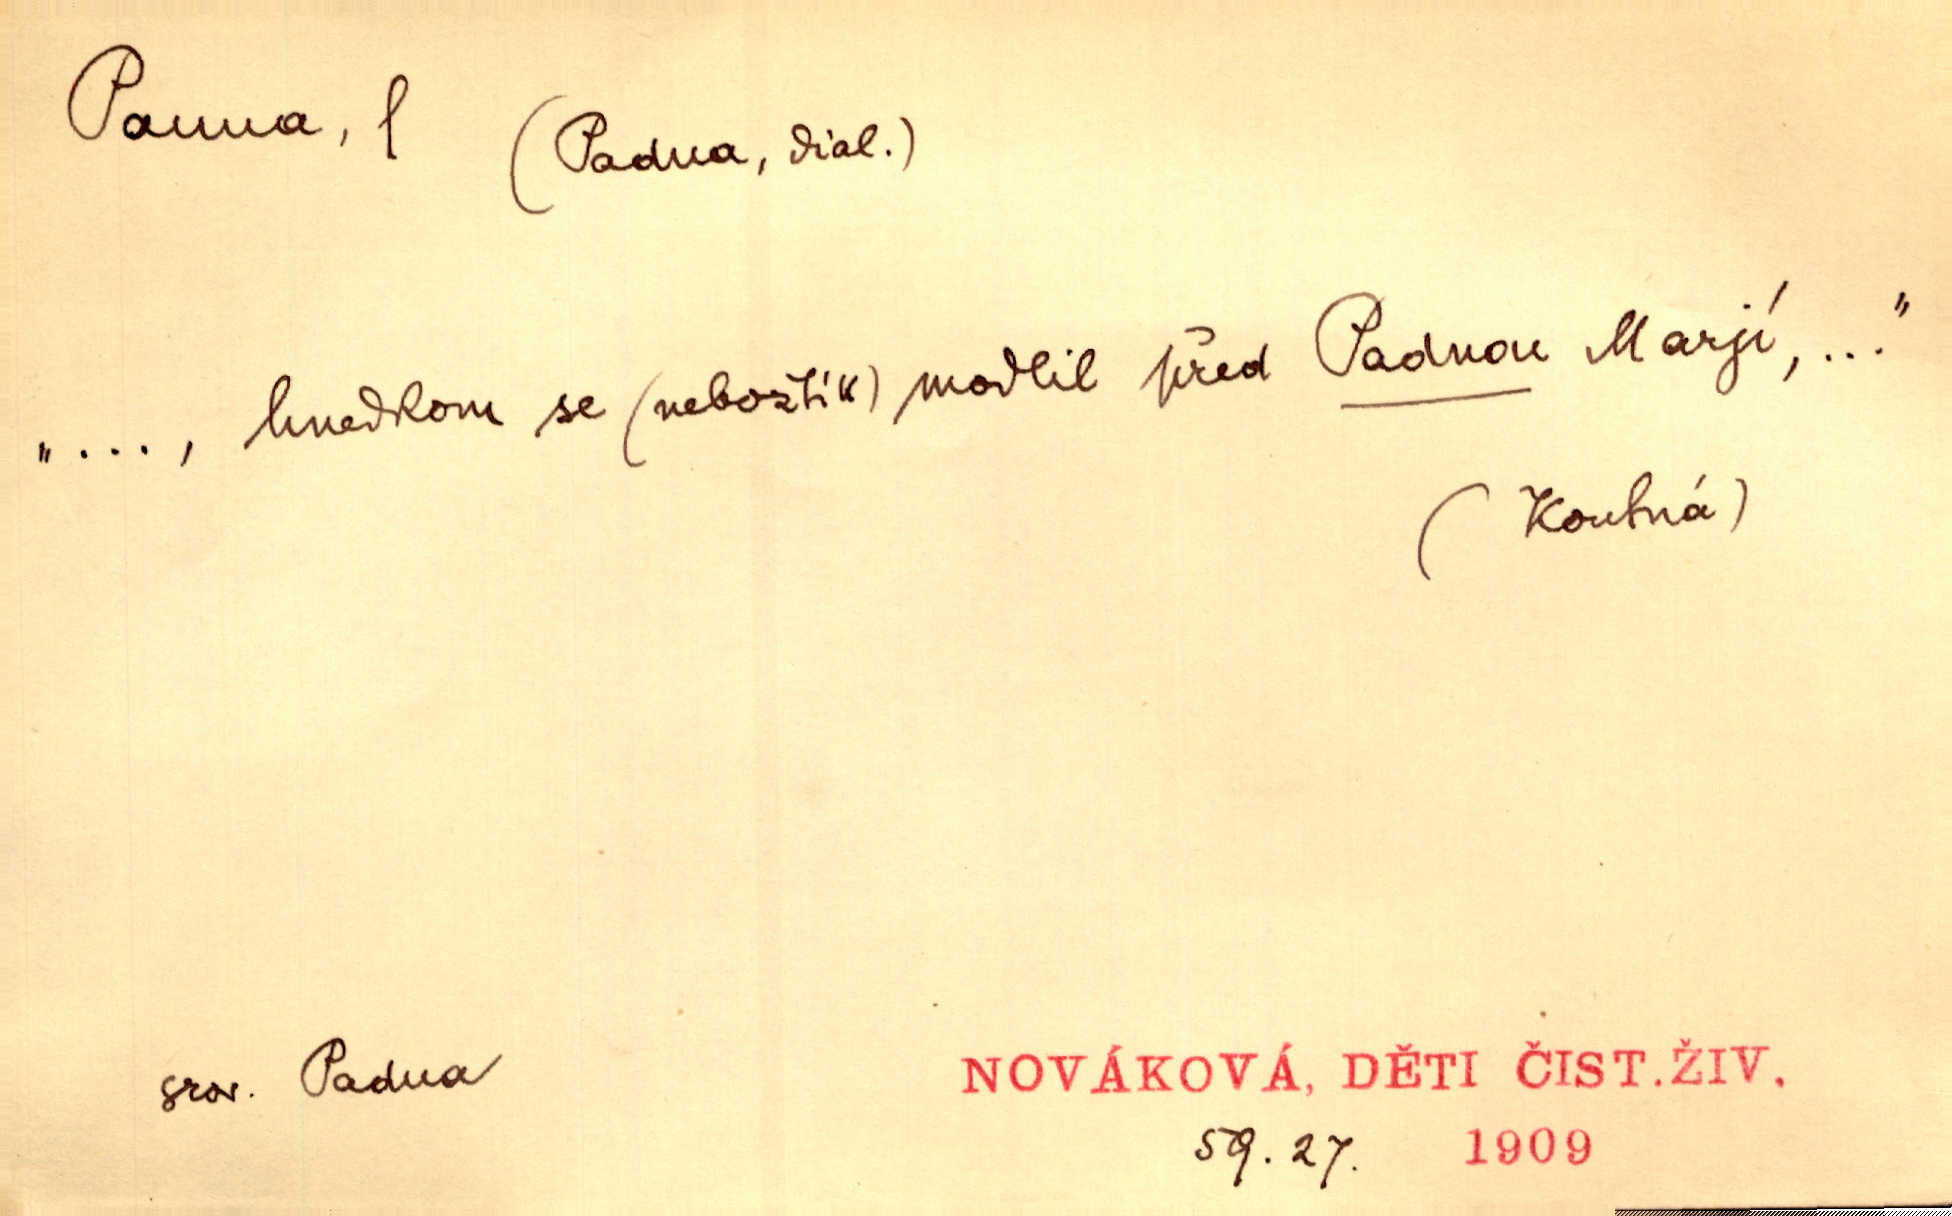 Panna, f (Padna, dial.)
„..., hnedkom se (nebožtík) modlil před Padnou Marjí,..."
(Koutná)
srov. Padna NOVÁKOVÁ, DĚTI ČIST.ŽIV.
59.27. 1909